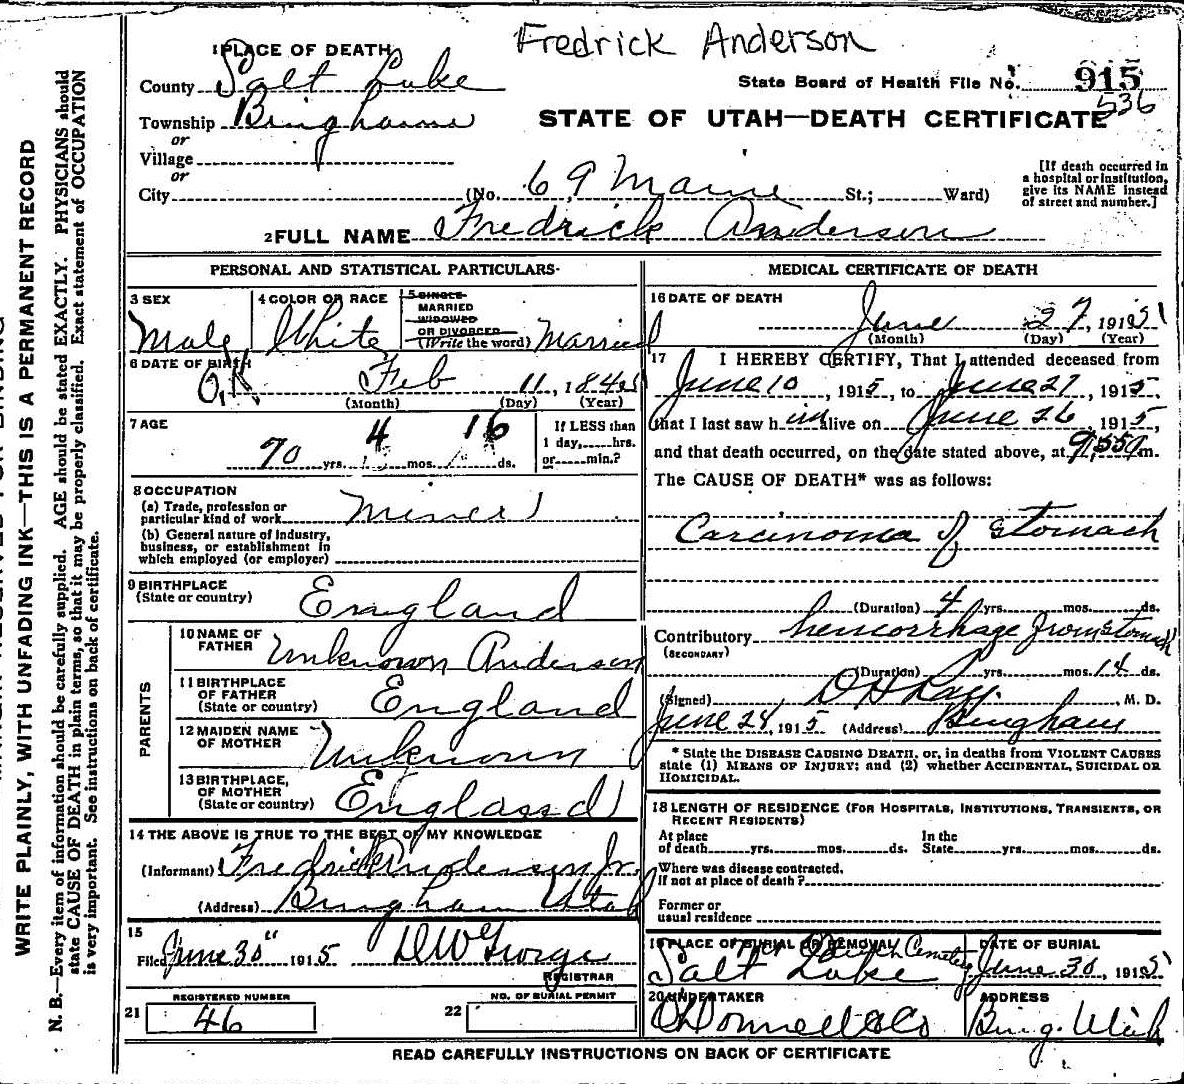 Fredrick Anderson
1 PLACE OF DEATH
County Salt Lake
State Board of Health File No. 915
536
Township Bingham
STATE OF UTAH—DEATH CERTIFICATE
or
Village
or
City (No. 69 Main St.; Ward)
[If death occurred in
a hospital or institution,
give its NAME instead
of street and number.]
2 FULL NAME Fredrick Anderson
PERSONAL AND STATISTICAL PARTICULARS
3 SEX
Male
4 COLOR OR RACE
White
5 SINGLE
MARRIED
WIDOWED
OR DIVORCED
(Write the word) Married
6 DATE OF BIRTH
O.K. Feb 11, 1845
(Month) (Day) (Year)
7 AGE
70 yrs. 4 mos. 16 ds.
If LESS than
1 day, hrs.
or min.?
8 OCCUPATION
(a) Trade, profession or
particular kind of work Miner
(b) General nature of industry,
business, or establishment in
which employed (or employer)
9 BIRTHPLACE
(State or country) England
PARENTS
10 NAME OF
FATHER Unknown Anderson
11 BIRTHPLACE
OF FATHER
(State or country) England
12 MAIDEN NAME
OF MOTHER Unknown
13 BIRTHPLACE,
OF MOTHER
(State or country) England
14 THE ABOVE IS TRUE TO THE BEST OF MY KNOWLEDGE
(Informant) Fredrick Anderson Jr.
(Address) Bingham Utah
15
Filed June 30" 1915 DW George
REGISTRAR
REGISTERED NUMBER
21 46
NO. OF BURIAL PERMIT
22
MEDICAL CERTIFICATE OF DEATH
16 DATE OF DEATH
June 27, 1915
(Month) (Day) (Year)
17 I HEREBY CERTIFY, That I attended deceased from
June 10, 1915, to June 27, 1915,
that I last saw him alive on June 26 1915,
and that death occurred, on the date stated above, at 9,55 a m.
The CAUSE OF DEATH* was as follows:
Carcinoma of stomach
(Duration) 4 yrs. mos. ds.
Contributory hemorrhage from stomach
(SECONDARY)
(Duration) yrs. mos. 14 ds.
(Signed) , M. D.
June 28, 1915 (Address) Bingham
* State the DISEASE CAUSING DEATH, or, in deaths from VIOLENT CAUSES
state (1) MEANS OF INJURY; and (2) whether ACCIDENTAL, SUICIDAL OR
HOMICIDAL.
18 LENGTH OF RESIDENCE (FOR HOSPITALS, INSTITUTIONS, TRANSIENTS, OR
RECENT RESIDENTS)
At place
of death yrs. mos. ds.
In the
State yrs. mos. ds.
Where was disease contracted,
If not at place of death?
Former or
usual residence
19 PLACE OF BURIAL OR REMOVAL
Cemetery
Salt Lake
DATE OF BURIAL
June 30, 1915
20 UNDERTAKER
O'Donnell & Co
ADDRESS
Bing. Utah
READ CAREFULLY INSTRUCTIONS ON BACK OF CERTIFICATE
WRITE PLAINLY, WITH UNFADING INK—THIS IS A PERMANENT RECORD
N. B.—Every item of information should be carefully supplied. AGE should be stated EXACTLY. PHYSICIANS should
state CAUSE OF DEATH in plain terms, so that it may be properly classified. Exact statement of OCCUPATION
is very important. See instructions on back of certificate.